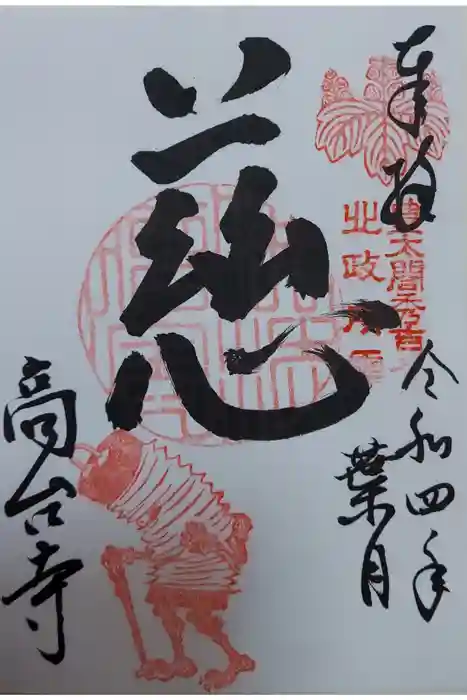 奉拝
豊太閤秀吉
北政所
令和四年
葉月
慈
高台寺